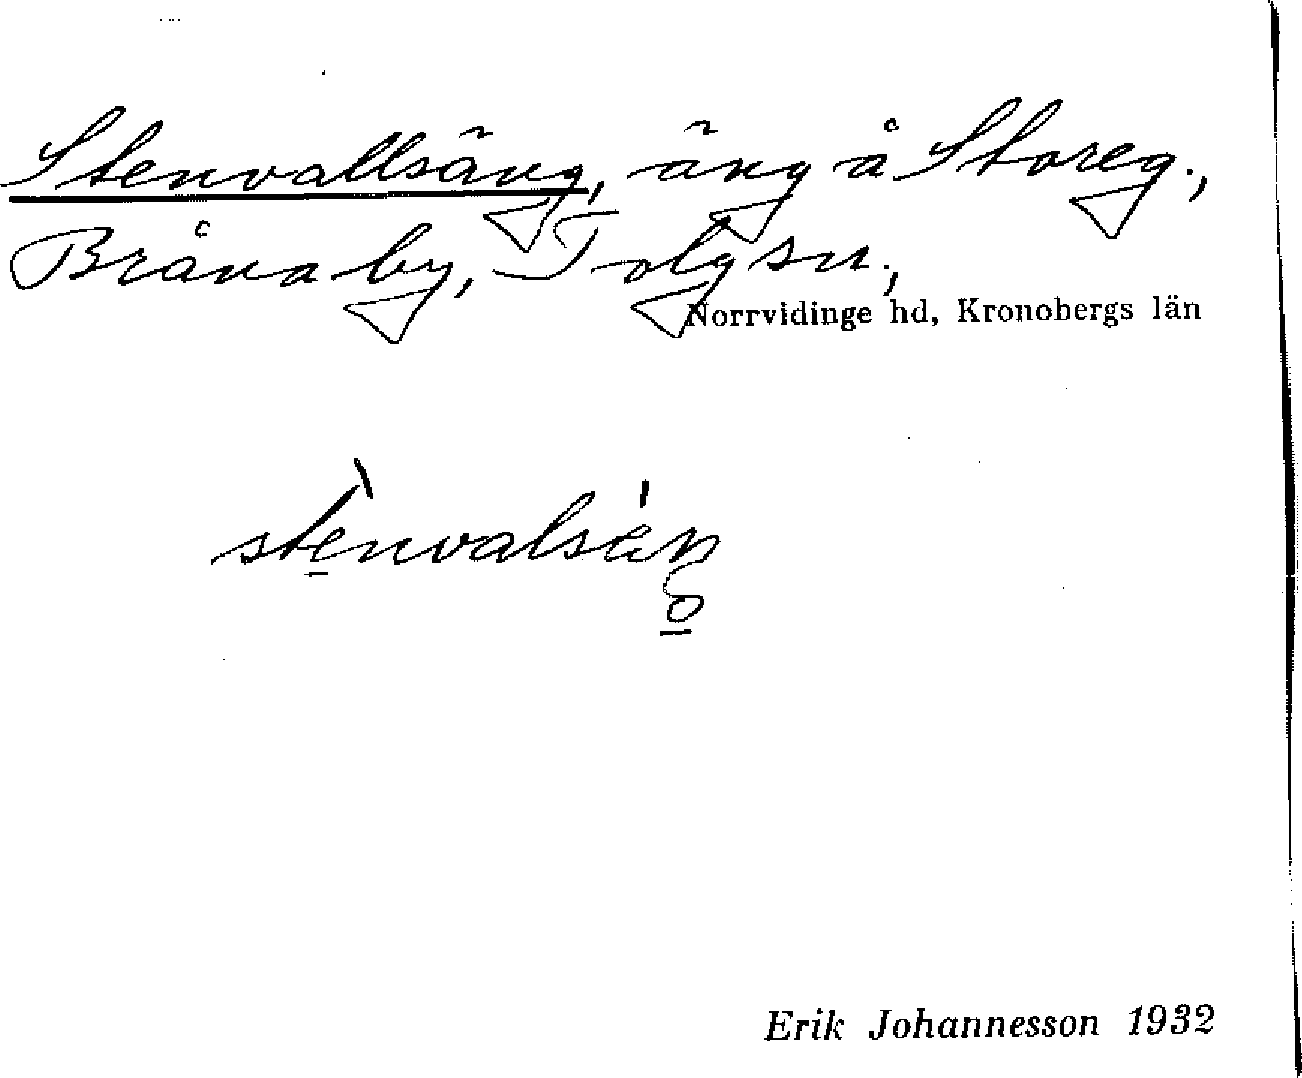 Stenvallsäng, äng å Storeg.,
Bråna by, Tolg sn.,
Norrvidinge hd, Kronobergs län
stènvalsáŋ
Erik Johannesson 1932